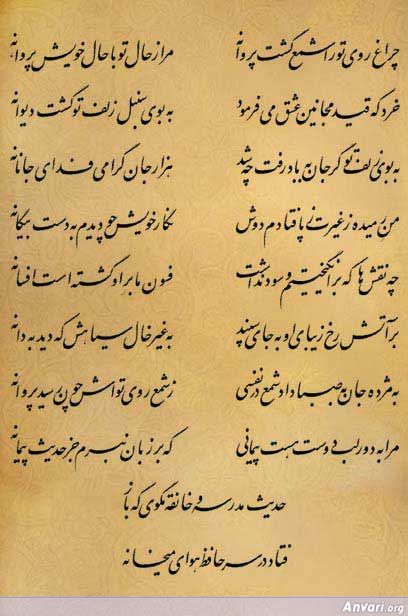 چراغ روی تو را شمع گشت پروانه مرا ز حال تو با حال خویش پروا نه
خرد که قید مجانین عشق می فرمود به بوی سنبل زلف تو گشت دیوانه
به بوی زلف تو گر جان به باد رفت چه شد هزار جان گرامی فدای جانانه
من رمیده ز غیرت ز پا فتادم دوش نگار خویش چو دیدم به دست بیگانه
چه نقش ها که برانگیختیم و سود نداشت فسون ما بر او گشته است افسانه
بر آتش رخ زیبای او به جای سپند به غیر خال سیاهش که دید به دانه
به مژده جان به صبا داد شمع در نفسی ز شمع روی تواش چون رسید پروانه
مرا به دور لب دوست هست پیمانی که بر زبان نبرم جز حدیث پیمانه
حدیث مدرسه و خانقه مگوی که باز
فتاد در سر حافظ هوای میخانه
Anvari.org